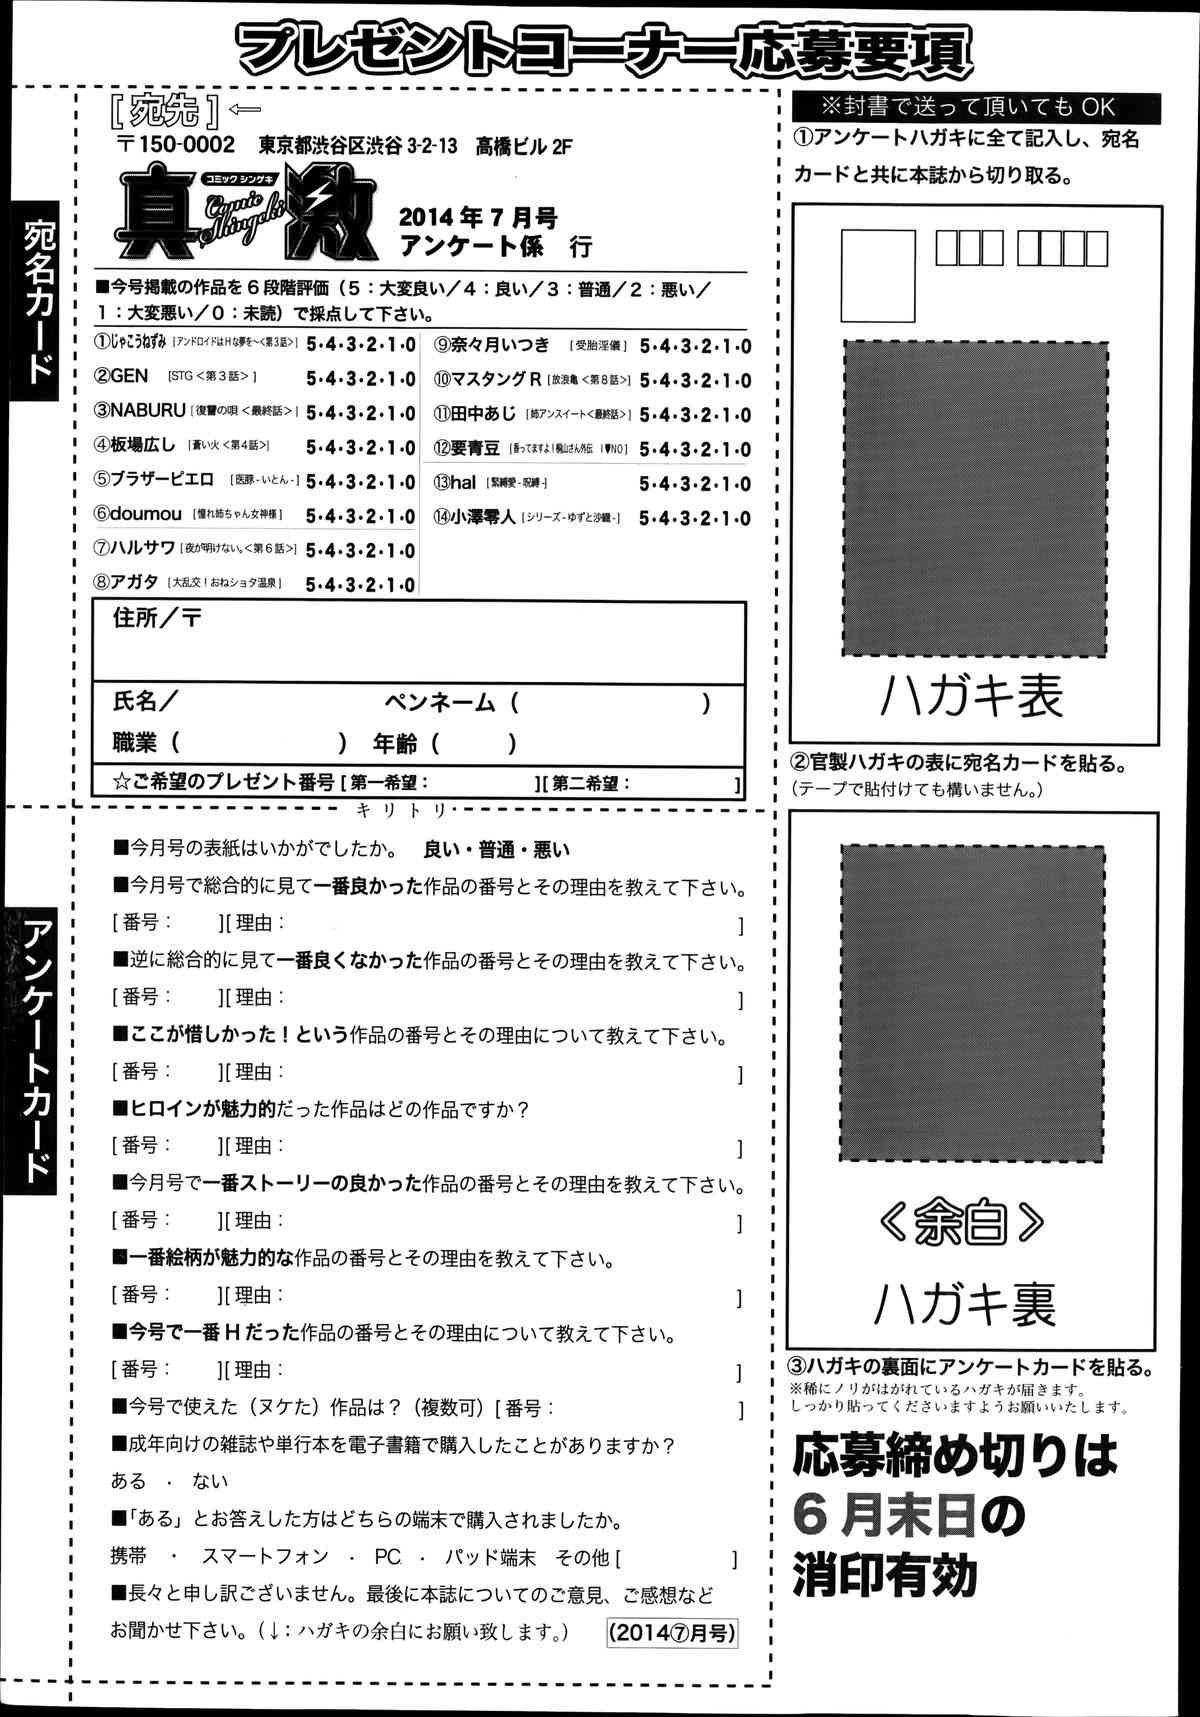 プレゼントコーナー応募要項
[宛先]←
〒150-0002 東京都渋谷区渋谷3-2-13 高橋ビル2F
コミックシンゲキ
真激
Comic Shingeki
2014年7月号
アンケート係 行
宛名カード
■今号掲載の作品を6段階評価（5：大変良い／4：良い／3：普通／2：悪い／
1：大変悪い／0：未読）で採点して下さい。
①じゃこうねずみ [アンドロイドはHな夢を〜<第3話>] 5・4・3・2・1・0
②GEN [STG<第3話>] 5・4・3・2・1・0
③NABURU [復讐の唄<最終話>] 5・4・3・2・1・0
④板場広し [蒼い火<第4話>] 5・4・3・2・1・0
⑤ブラザーピエロ [医豚-いとん-] 5・4・3・2・1・0
⑥doumou [憧れ姉ちゃん女神様] 5・4・3・2・1・0
⑦ハルサワ [夜が明けない。<第6話>] 5・4・3・2・1・0
⑧アガタ [大乱交！おねショタ温泉] 5・4・3・2・1・0
⑨奈々月いつき [受胎淫儀] 5・4・3・2・1・0
⑩マスタングR [放浪亀<第8話>] 5・4・3・2・1・0
⑪田中あじ [姉アンスイート<最終話>] 5・4・3・2・1・0
⑫要青豆 [香ってますよ！桐山さん外伝 I♥NO] 5・4・3・2・1・0
⑬hal [緊縛愛-呪縛-] 5・4・3・2・1・0
⑭小澤零人 [シリーズ-ゆずと沙織-] 5・4・3・2・1・0
住所／〒
氏名／ ペンネーム（ ）
職業（ ） 年齢（ ）
☆ご希望のプレゼント番号[第一希望： ][第二希望： ]
キリトリ
アンケートカード
■今月号の表紙はいかがでしたか。 良い・普通・悪い
■今月号で総合的に見て一番良かった作品の番号とその理由を教えて下さい。
[番号： ][理由： ]
■逆に総合的に見て一番良くなかった作品の番号とその理由を教えて下さい。
[番号： ][理由： ]
■ここが惜しかった！という作品の番号とその理由について教えて下さい。
[番号： ][理由： ]
■ヒロインが魅力的だった作品はどの作品ですか？
[番号： ][理由： ]
■今月号で一番ストーリーの良かった作品の番号とその理由を教えて下さい。
[番号： ][理由： ]
■一番絵柄が魅力的な作品の番号とその理由を教えて下さい。
[番号： ][理由： ]
■今号で一番Hだった作品の番号とその理由について教えて下さい。
[番号： ][理由： ]
■今号で使えた（ヌケた）作品は？（複数可）[番号： ]
■成年向けの雑誌や単行本を電子書籍で購入したことがありますか？
ある ・ ない
■「ある」とお答えした方はどちらの端末で購入されましたか。
携帯 ・ スマートフォン ・ PC ・ パッド端末 その他[ ]
■長々と申し訳ございません。最後に本誌についてのご意見、ご感想など
お聞かせ下さい。（↓：ハガキの余白にお願い致します。） （2014⑦月号）
※封書で送って頂いてもOK
①アンケートハガキに全て記入し、宛名
カードと共に本誌から切り取る。
ハガキ表
②官製ハガキの表に宛名カードを貼る。
（テープで貼付けても構いません。）
＜余白＞
ハガキ裏
③ハガキの裏面にアンケートカードを貼る。
※稀にノリがはがれているハガキが届きます。
しっかり貼ってくださいますようお願いいたします。
応募締め切りは
6月末日の
消印有効